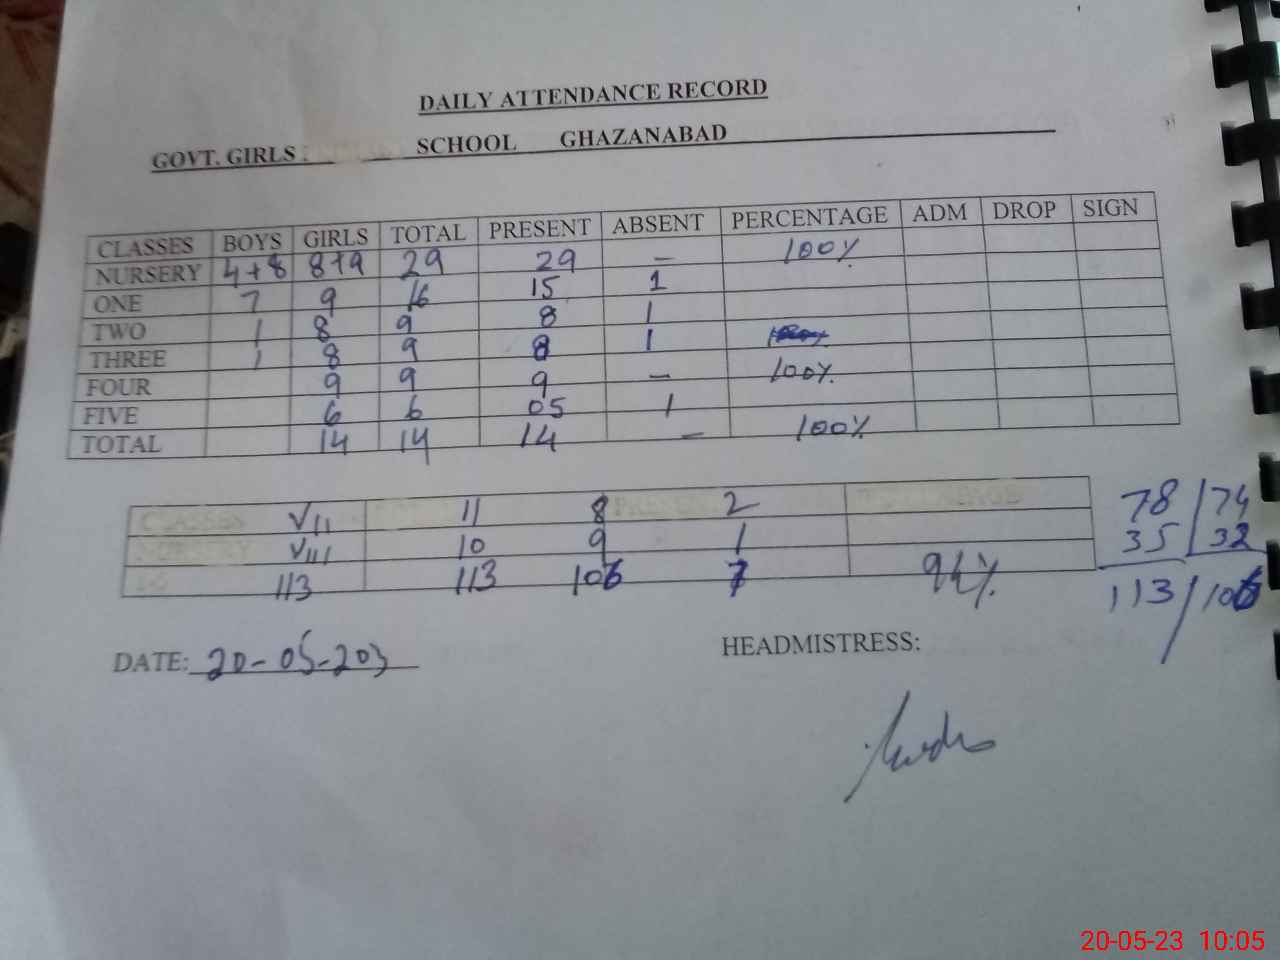 DAILY ATTENDANCE RECORD
GOVT. GIRLS SCHOOL GHAZANABAD
CLASSES BOYS GIRLS TOTAL PRESENT ABSENT PERCENTAGE ADM DROP SIGN
NURSERY 4+8 8+9 29 29 – 100%
ONE 7 9 16 15 1
TWO 1 8 9 8 1
THREE 1 8 9 8 1
FOUR 9 9 9 – 100%
FIVE 6 6 05 1
TOTAL 14 14 14 – 100%
CLASSES VII 11 8 2
NURSERY VIII 10 9 1
113 113 106 7 94%
78/74
35/32
113/106
DATE: 20-05-203
HEADMISTRESS:
20-05-23 10:05